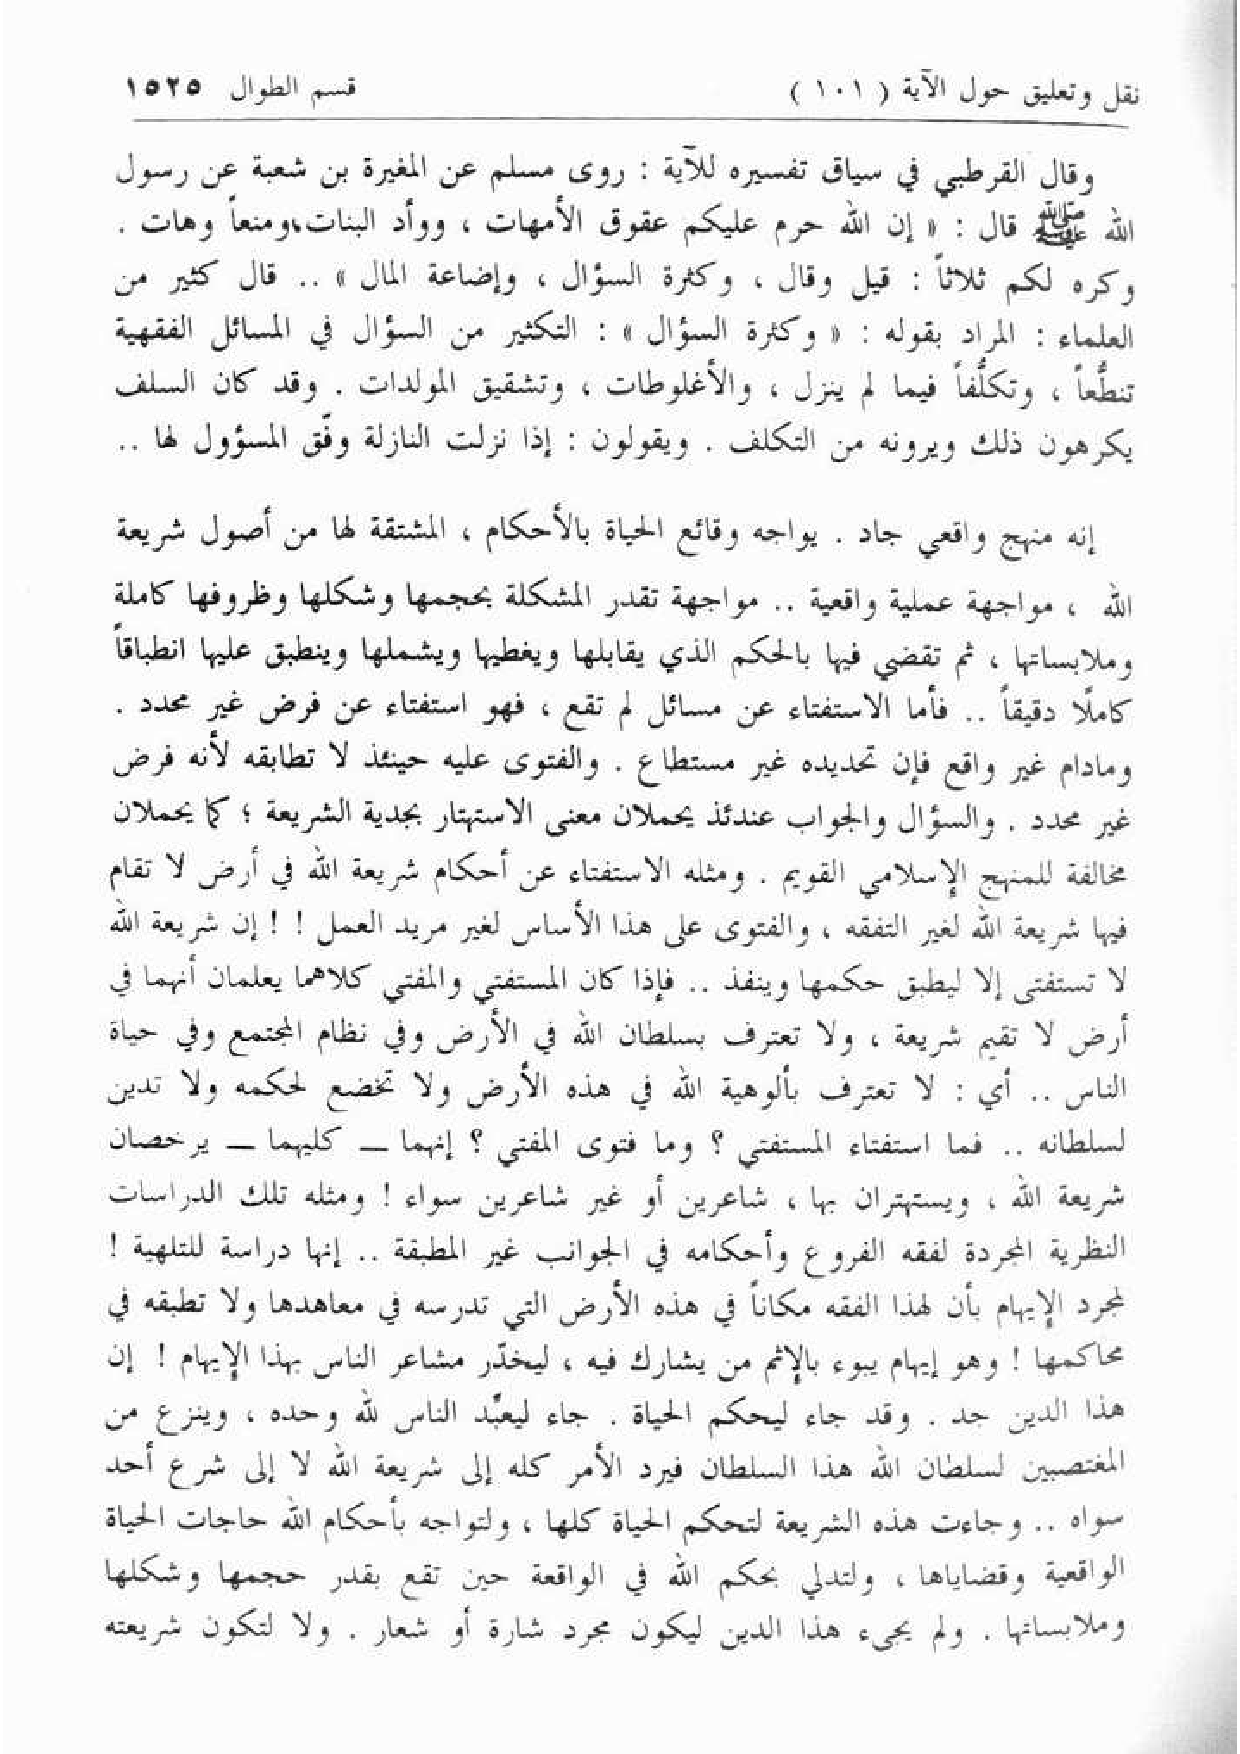 نقل وتعليق حول الآية ( ١٠١ ) قسم الطوال ١٥٢٥
وقال القرطبي في سياق تفسيره للآية : روى مسلم عن المغيرة بن شعبة عن رسول
الله ﷺ قال : « إن الله حرم عليكم عقوق الأمهات ، ووأد البنات ، ومنعاً وهات .
وكره لكم ثلاثاً : قيل وقال ، وكثرة السؤال ، وإضاعة المال » .. قال كثير من
العلماء : المراد بقوله : « وكثرة السؤال » : التكثير من السؤال في المسائل الفقهية
تنطُّعاً ، وتكلُّفاً فيما لم ينزل ، والأغلوطات ، وتشقيق المولدات . وقد كان السلف
يكرهون ذلك ويرونه من التكلف . ويقولون : إذا نزلت النازلة وفّق المسؤول لها ..
إنه منهج واقعي جاد . يواجه وقائع الحياة بالأحكام ، المشتقة لها من أصول شريعة
الله ، مواجهة عملية واقعية .. مواجهة تقدر المشكلة بحجمها وشكلها وظروفها كاملة
وملابساتها ، ثم تقضي فيها بالحكم الذي يقابلها ويغطيها ويشملها وينطبق عليها انطباقاً
كاملًا دقيقاً .. فأما الاستفتاء عن مسائل لم تقع ، فهو استفتاء عن فرض غير محدد .
ومادام غير واقع فإن تحديده غير مستطاع . والفتوى عليه حينئذ لا تطابقه لأنه فرض
غير محدد . والسؤال والجواب عندئذ يحملان معنى الاستهتار بجدية الشريعة ؛ كما يحملان
مخالفة للمنهج الإسلامي القويم . ومثله الاستفتاء عن أحكام شريعة الله في أرض لا تقام
فيها شريعة الله لغير التفقه ، والفتوى على هذا الأساس لغير مريد العمل ! ! إن شريعة الله
لا تستفتى إلا ليطبق حكمها وينفذ .. فإذا كان المستفتي والمفتي كلاهما يعلمان أنهما في
أرض لا تقيم شريعة ، ولا تعترف بسلطان الله في الأرض وفي نظام المجتمع وفي حياة
الناس .. أي : لا تعترف بألوهية الله في هذه الأرض ولا تخضع لحكمه ولا تدين
لسلطانه .. فما استفتاء المستفتي ؟ وما فتوى المفتي ؟ إنهما ــ كليهما ــ يرخصان
شريعة الله ، ويستهتران بها ، شاعرين أو غير شاعرين سواء ! ومثله تلك الدراسات
النظرية المجردة لفقه الفروع وأحكامه في الجوانب غير المطبقة .. إنها دراسة للتلهية !
لمجرد الإيهام بأن لهذا الفقه مكاناً في هذه الأرض التي تدرسه في معاهدها ولا تطبقه في
محاكمها ! وهو إيهام يبوء بالإثم من يشارك فيه ، ليخدّر مشاعر الناس بهذا الإيهام ! إن
هذا الدين جد . وقد جاء ليحكم الحياة . جاء ليعبِّد الناس لله وحده ، وينزع من
المغتصبين لسلطان الله هذا السلطان فيرد الأمر كله إلى شريعة الله لا إلى شرع أحد
سواه .. وجاءت هذه الشريعة لتحكم الحياة كلها ، ولتواجه بأحكام الله حاجات الحياة
الواقعية وقضاياها ، ولتدلي بحكم الله في الواقعة حين تقع بقدر حجمها وشكلها
وملابساتها . ولم يجيء هذا الدين ليكون مجرد شارة أو شعار . ولا لتكون شريعته